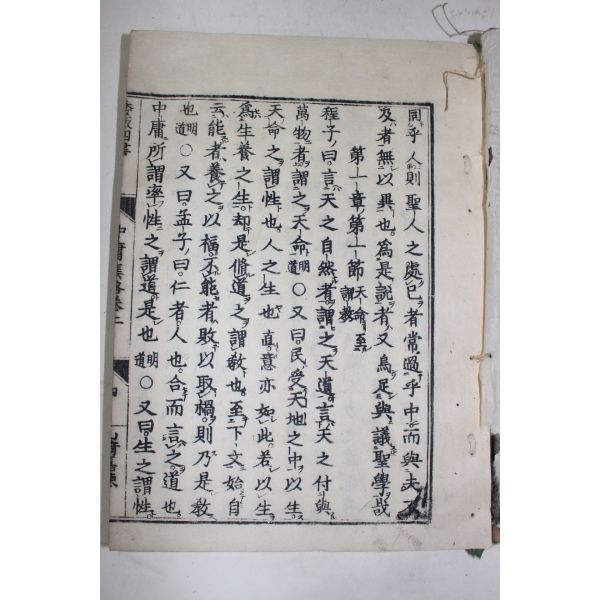 同乎人則聖人之處已者常過乎中而與夫
及者無以異也為是說者又烏足與議聖學哉
第一章第一節天命至謂敎
程子曰言天之自然者謂之天道言天之付與
萬物者謂之天命明道〇又曰民受天地之中以生
天命之謂性也人之生也直意亦如此若以生
為生養之生却是脩道之謂敎也至下文始自
云能者養之以福不能者敗以取禍則乃是敎
也明道〇又曰孟子曰仁者人也合而言之道也
中庸所謂率性之謂道是也明道〇又曰生之謂性
中庸集略卷上
四